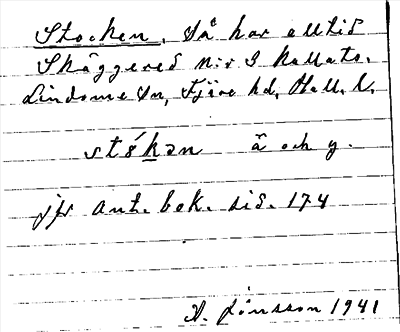 Stocken, Så har alltid
Skäggered n:r 3 kallats.
Lindome Sn, Fjäre hd, Hall. l.
stókən ä och y.
jfr Ant. bok. sid. 174
A. Jönsson 1941